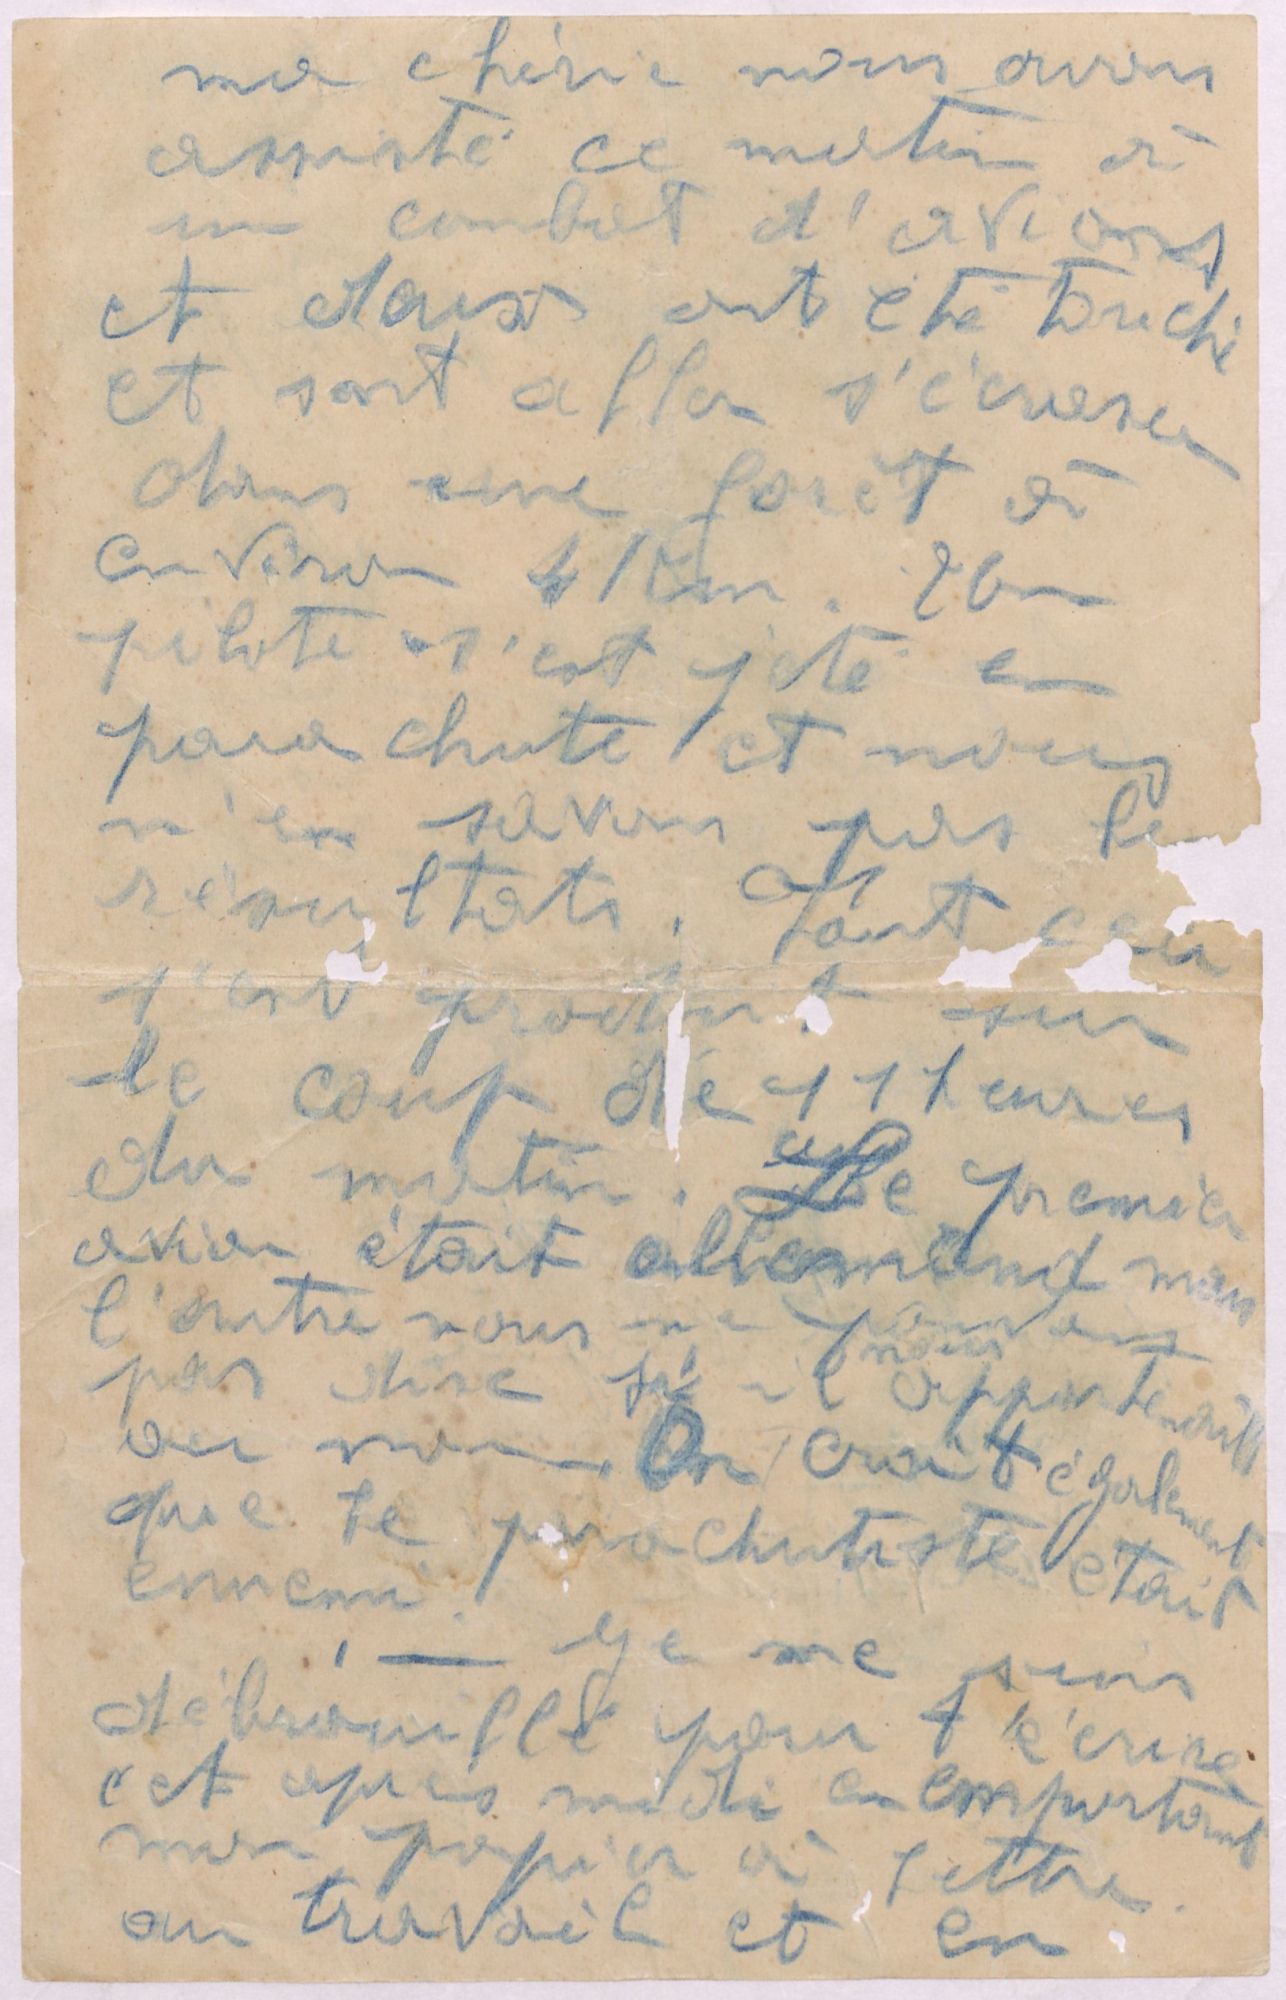 ma chérie nous avons
assisté ce matin à
un combat d'avions
et deux ont été touché
et sont aller s'écraser
dans une forêt à
environ 4 Km. Un
pilote s'est jeté en
parachute et nous
n'en savons pas le
résultats. Tout ceci
s'est produit sur
le coup de 11 heures
du matin. Le premier
avion était allemand mais
l'autre nous ne pouvons
pas dire si il nous appartenait
ou non. On croit également
que le parachutiste etait
ennemi.
— Je me suis
débrouillé pour t'écrire
cet après midi en emportant
mon papier à lettre.
au travail et en